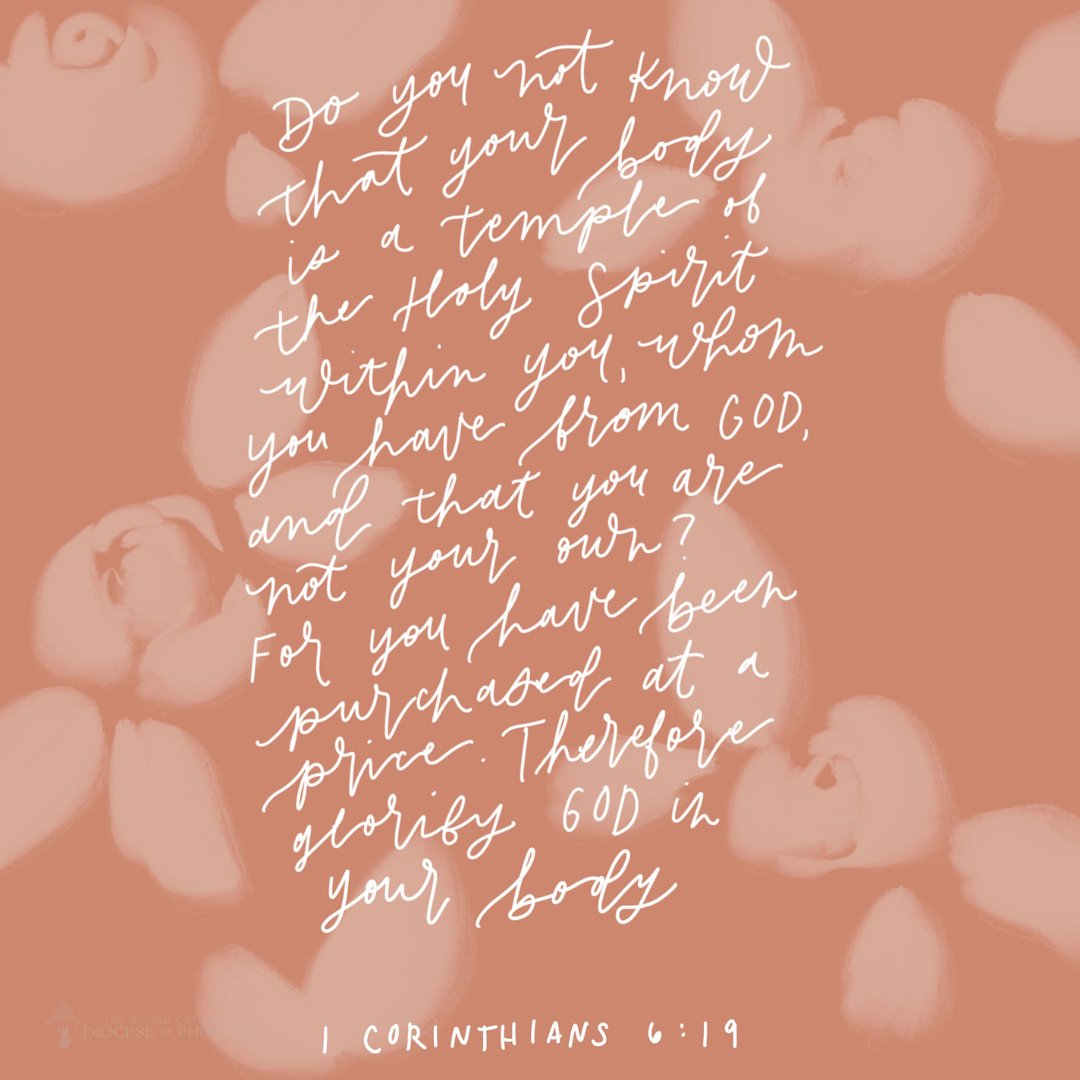 Do you not know
that your body
is a temple of
the Holy Spirit
within you, whom
you have from GOD,
and that you are
not your own?
For you have been
purchased at a
price. Therefore
glorify GOD in
your body
THE ROMAN
DIOCESE OF
1 CORINTHIANS 6:19